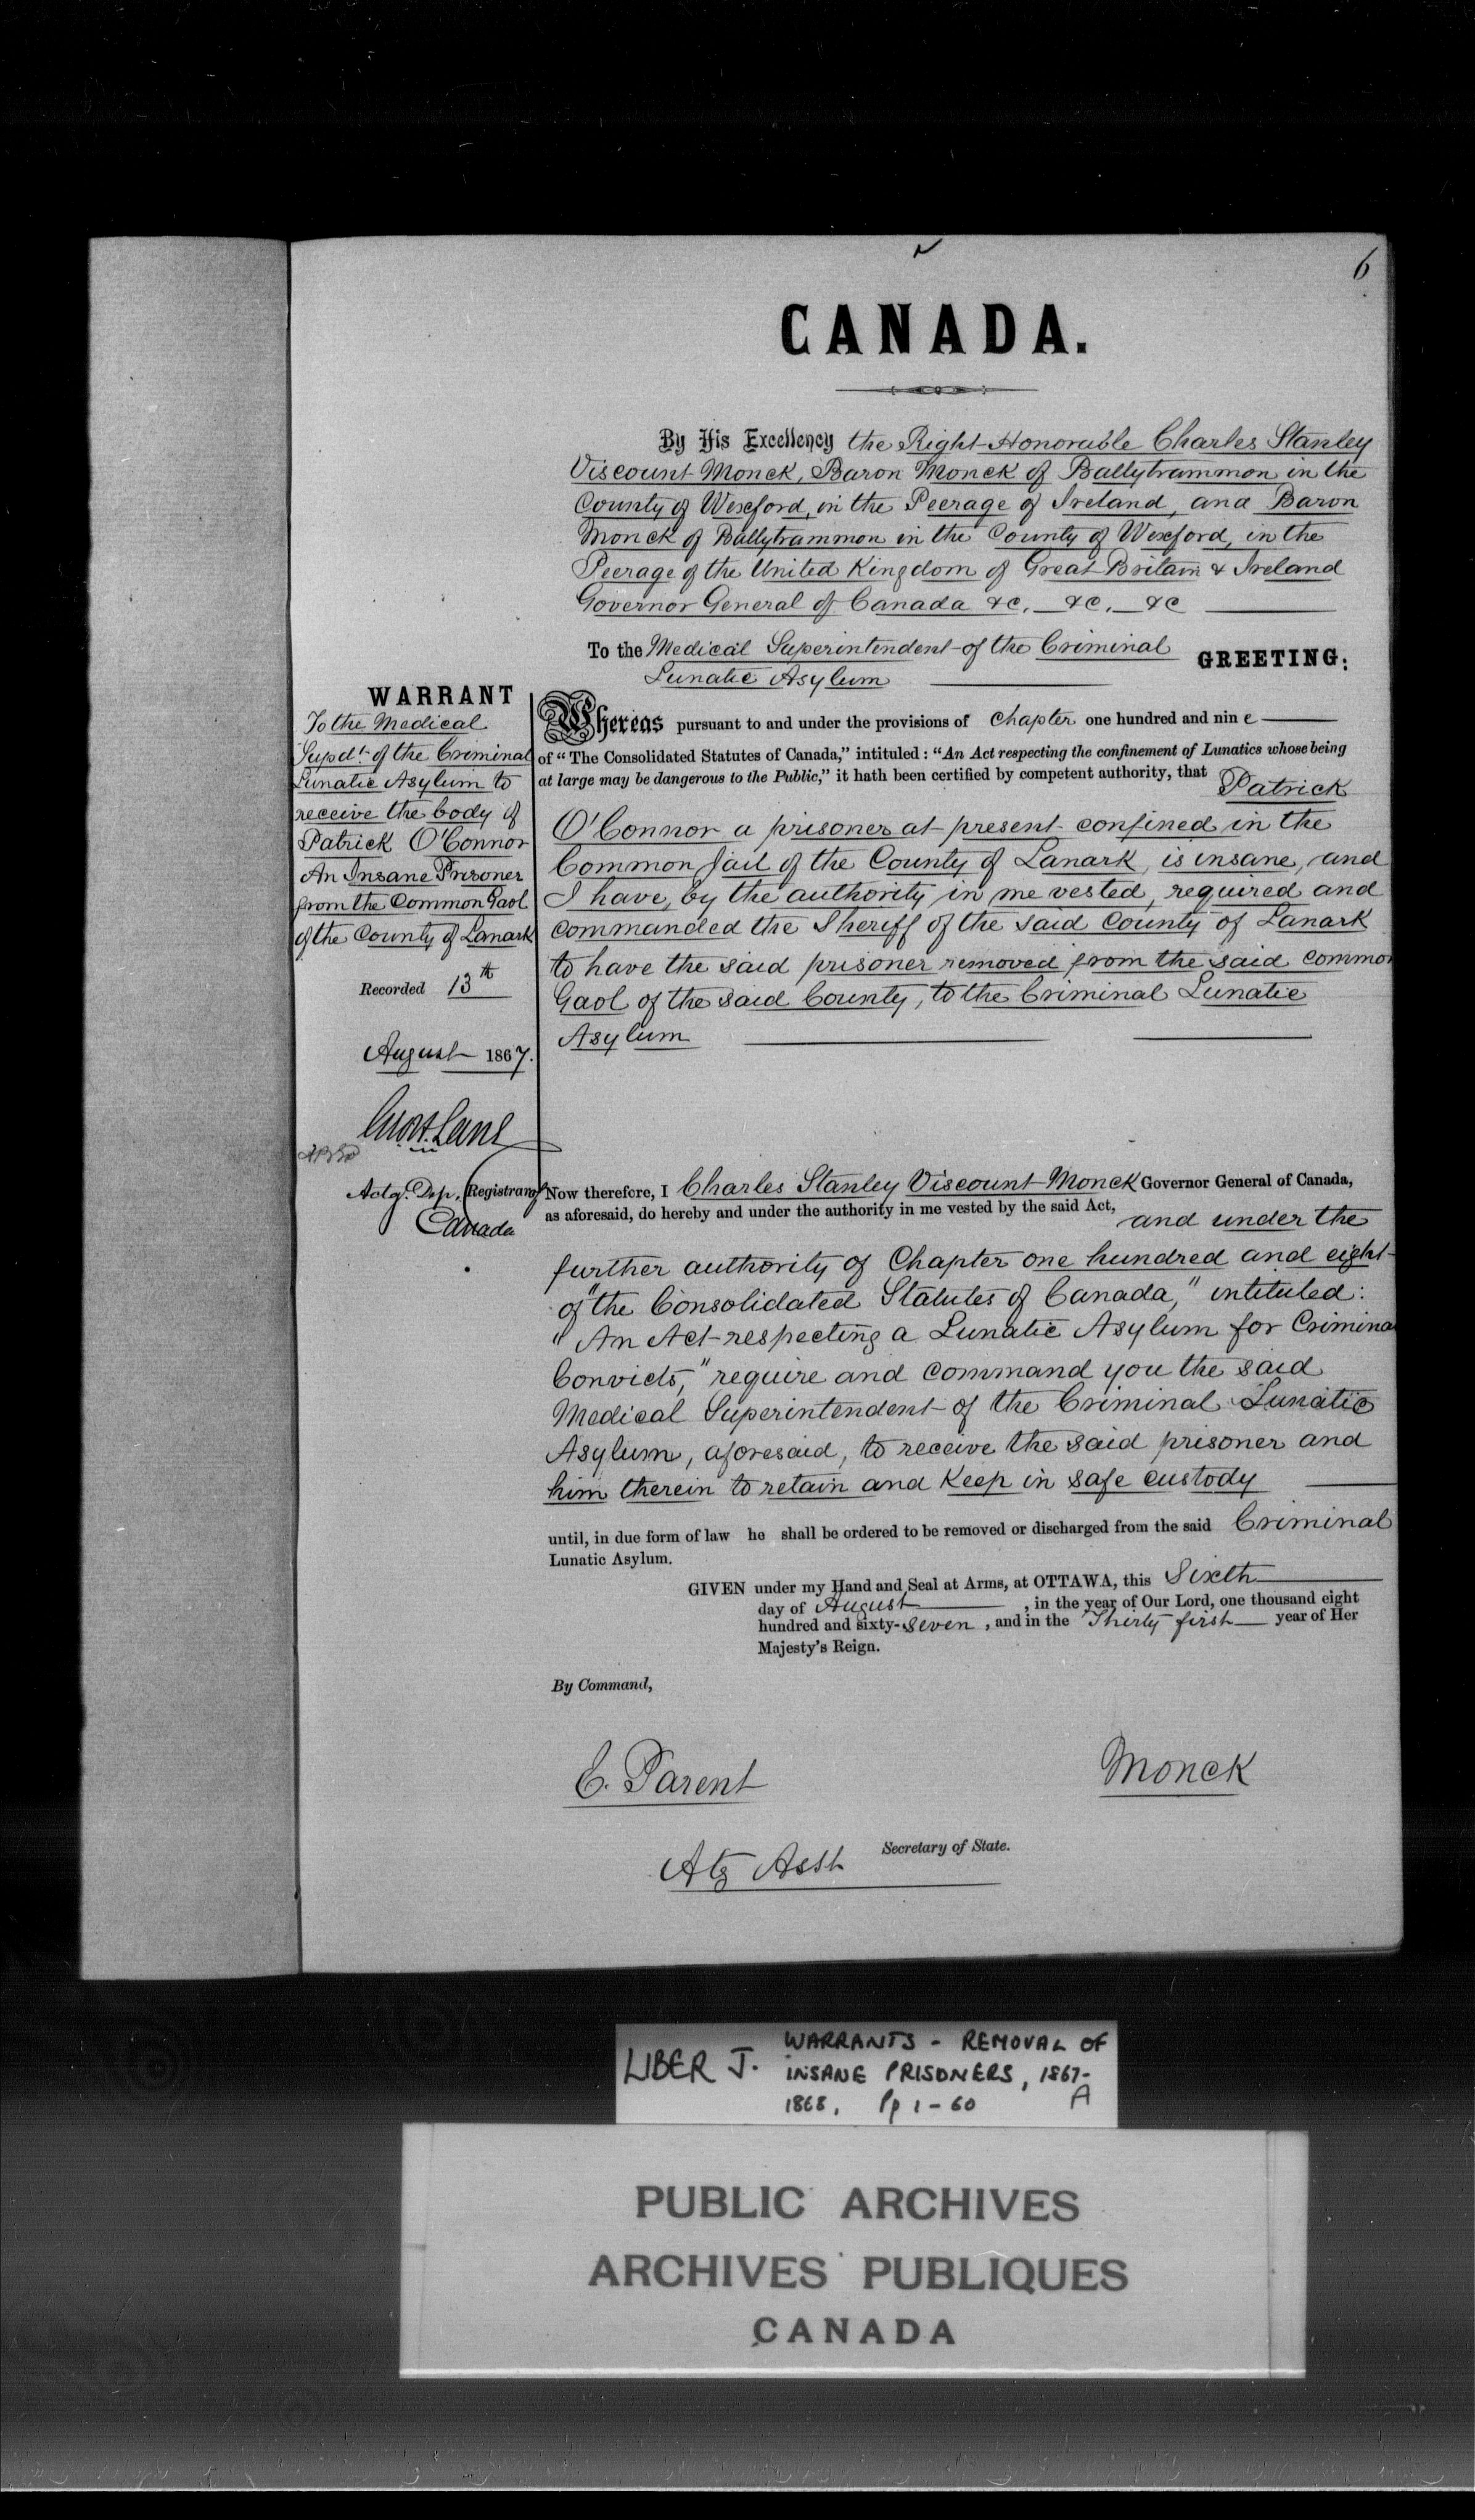 6
CANADA.
By His Excellency the Right Honorable Charles Stanley
Viscount Monck, Baron Monck of Ballytrammon in the
County of Wexford, in the Peerage of Ireland, and Baron
Monck of Ballytrammon in the County of Wexford, in the
Peerage of the United Kingdom of Great Britain & Ireland
Governor General of Canada &c, &c, &c
To the Medical Superintendent of the Criminal
Lunatic Asylum
GREETING:
WARRANT
To the Medical
Supdt. of the Criminal
Lunatic Asylum to
receive the body of
Patrick O'Connor
An Insane Prisoner
from the Common Gaol
of the County of Lanark
Recorded 13th
August 1867.
Actg. Dep. Registrar of
Canada
Whereas pursuant to and under the provisions of Chapter one hundred and nine
of "The Consolidated Statutes of Canada," intituled: "An Act respecting the confinement of Lunatics whose being
at large may be dangerous to the Public," it hath been certified by competent authority, that Patrick
O'Connor a prisoner at present confined in the
Common Jail of the County of Lanark, is insane, and
I have, by the authority in me vested, required and
commanded the Sheriff of the said County of Lanark
to have the said prisoner removed from the said common
Gaol of the said County, to the Criminal Lunatic
Asylum
Now therefore, I Charles Stanley Viscount Monck Governor General of Canada,
as aforesaid, do hereby and under the authority in me vested by the said Act, and under the
further authority of Chapter one hundred and eight
of "the Consolidated Statutes of Canada," intituled:
"An Act respecting a Lunatic Asylum for Criminal
Convicts," require and command you the said
Medical Superintendent of the Criminal Lunatic
Asylum, aforesaid, to receive the said prisoner and
him therein to retain and keep in safe custody
until, in due form of law he shall be ordered to be removed or discharged from the said Criminal
Lunatic Asylum.
GIVEN under my Hand and Seal at Arms, at OTTAWA, this Sixth
day of August, in the year of Our Lord, one thousand eight
hundred and sixty-seven, and in the Thirty first year of Her
Majesty's Reign.
By Command,
E. Parent
Monck
Atg Asst Secretary of State.
LIBER J. WARRANTS - REMOVAL OF
INSANE PRISONERS, 1867-
1868, Pp 1-60 A
PUBLIC ARCHIVES
ARCHIVES PUBLIQUES
CANADA